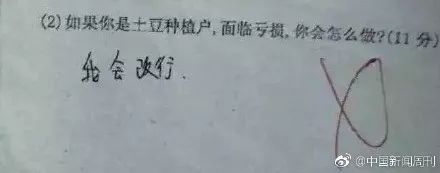 (2)如果你是土豆种植户,面临亏损,你会怎么做?(11分)
我会改行.
@中国新闻周刊